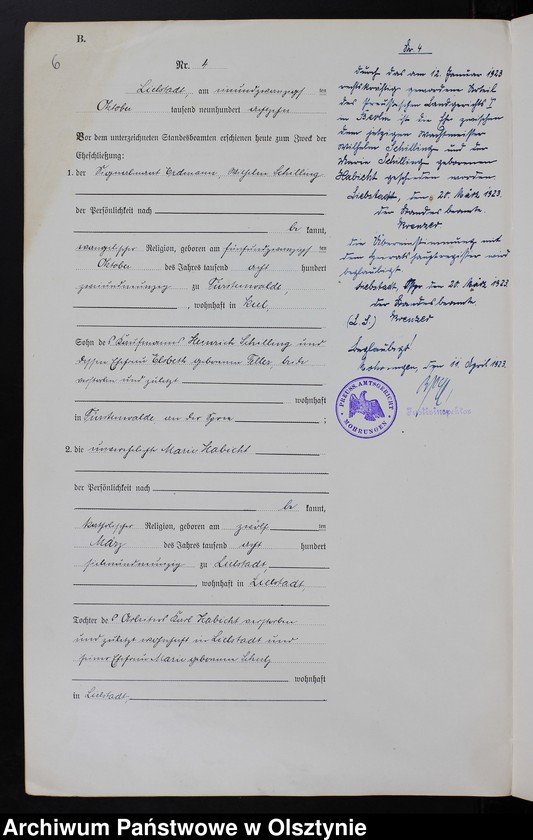 B.
6
Nr. 4
Liebstadt, am neunundzwanzigsten
Oktober tausend neunhundert achtzehn
Vor dem unterzeichneten Standesbeamten erschienen heute zum Zweck der
Eheschließung:
1. der Signalmaat Erdmann, Wilhelm Schilling
der Persönlichkeit nach
be kannt,
evangelischer Religion, geboren am fünfundzwanzigsten
Oktober des Jahres tausend acht hundert
zweiundneunzig zu Fürstenwalde,
, wohnhaft in Kiel,
Sohn des Kaufmanns Heinrich Schilling und
dessen Ehefrau Elsbeth geborenen beide
verstorben und zuletzt
wohnhaft
in Fürstenwalde, an der Spree ;
2. die unverehelichte Marie Habicht
der Persönlichkeit nach
be kannt,
katholischer Religion, geboren am zwölften
März des Jahres tausend acht hundert
siebenundneunzig zu Liebstadt,
, wohnhaft in Liebstadt,
Tochter des Arbeiters Karl Habicht verstorben
und zuletzt wohnhaft in Liebstadt und
seiner Ehefrau Marie geborenen Schulz
wohnhaft
in Liebstadt,
Nr. 4
Durch das am 12. Januar 1923
rechtskräftig gewordene Urteil
des Preußischen Landgerichts I
in Berlin ist die Ehe zwischen
dem jetzigen Wachtmeister
Wilhelm Schilling und der
Marie Schilling geborenen
Habicht geschieden worden.
Liebstadt, den 20. März 1923.
Der Standesbeamte.
Krenzer
Die Übereinstimmung mit
dem Hauptregister wird
beglaubigt
Liebstadt, Opr den 20. März 1923
Der Standesbeamte
(L. S.) Krenzer
Beglaubigt
Mohrungen, den 11. April 1923.
PREUSS. AMTSGERICHT
MOHRUNGEN
Archiwum Państwowe w Olsztynie